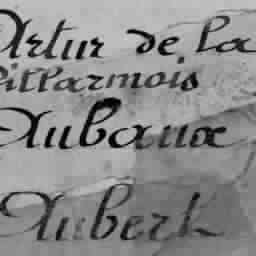 Artur de la
Villarmois
Aubaux
Aubert